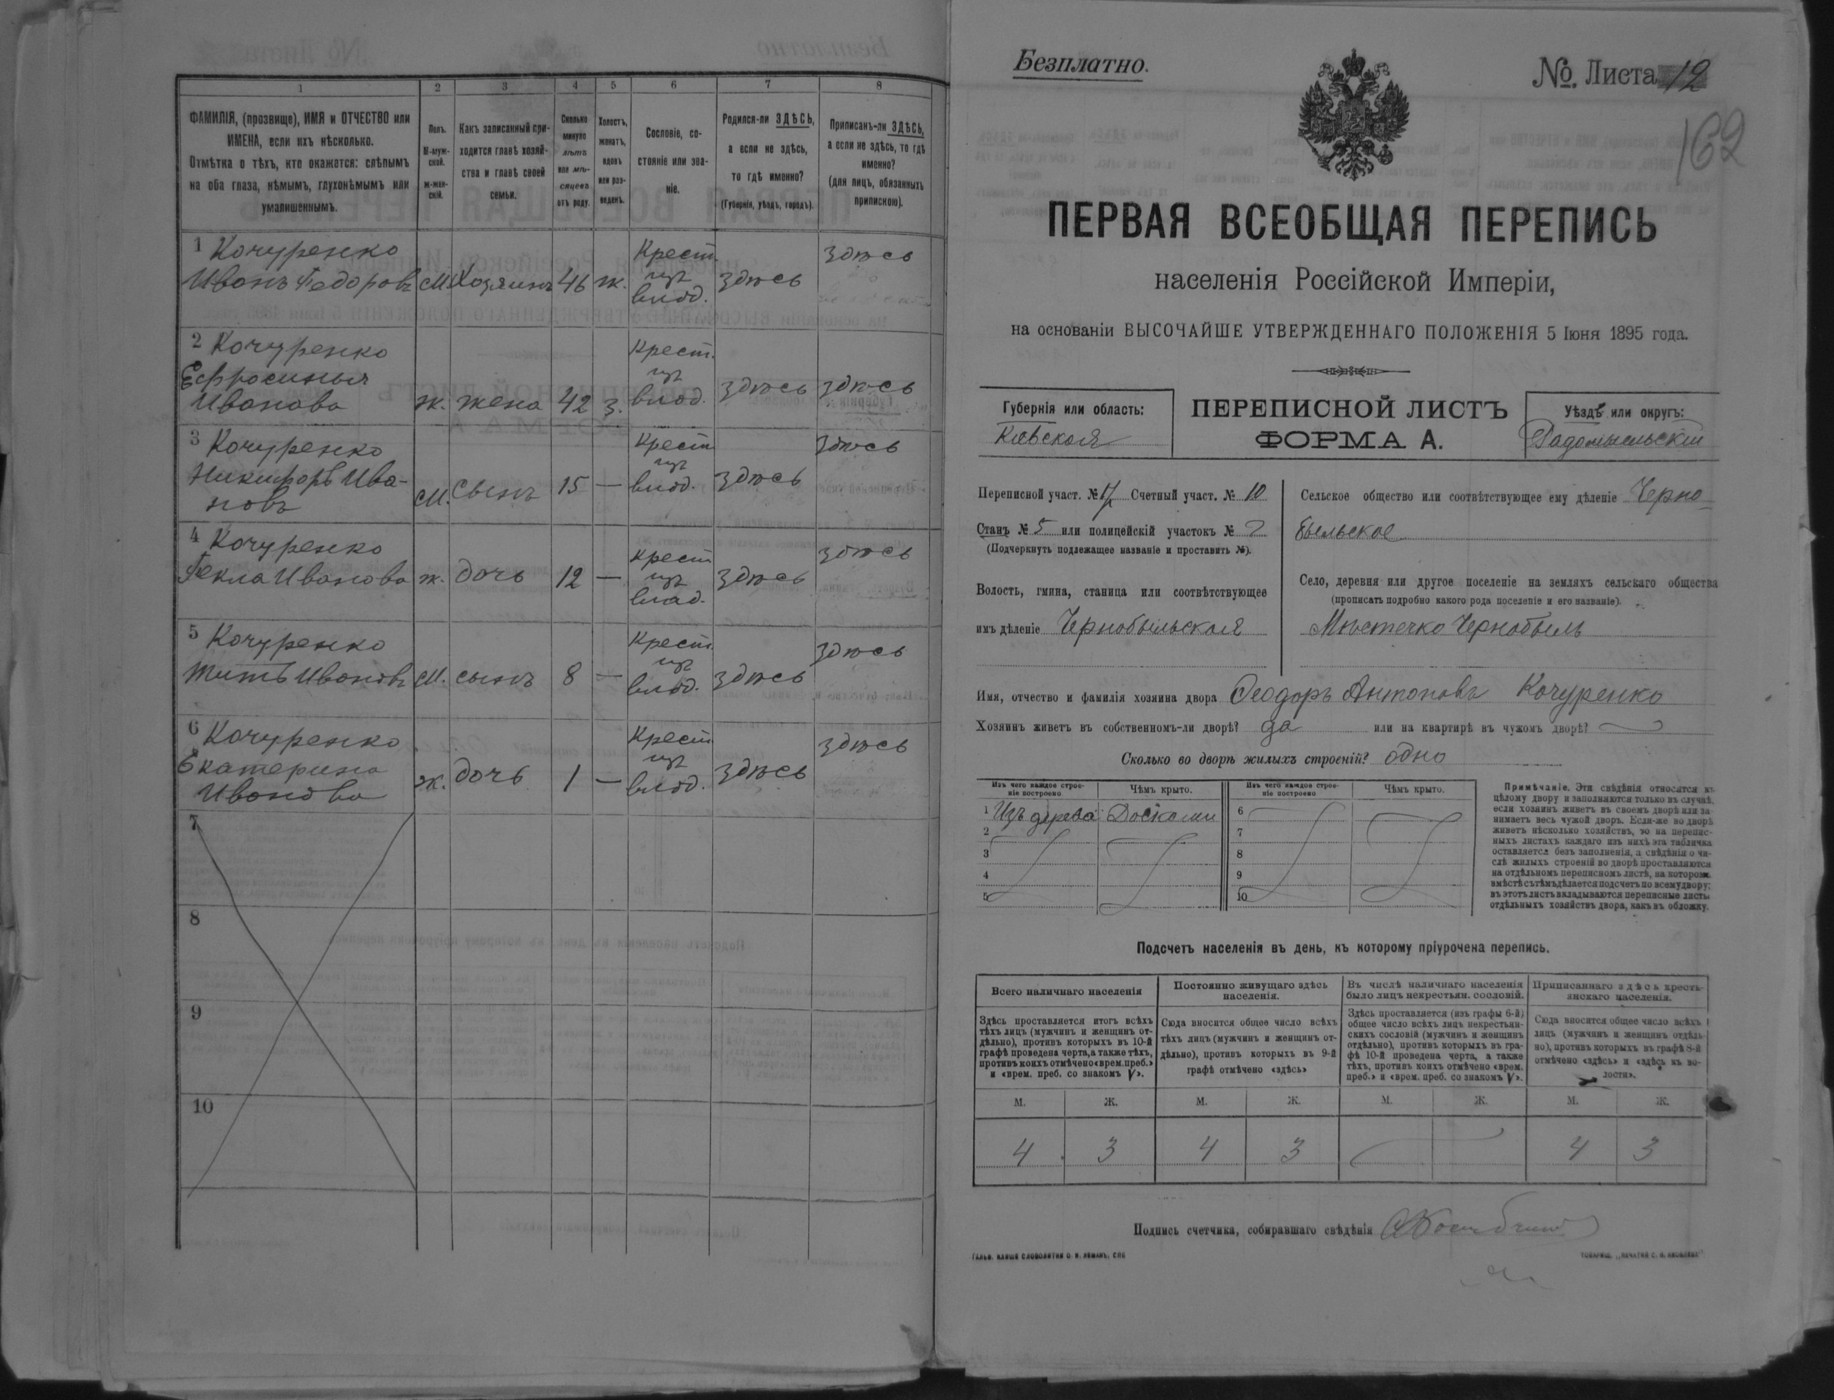 1
2
3
4
5
6
7
8
ФАМИЛІЯ, (прозвище), ИМЯ и ОТЧЕСТВО или
ИМЕНА, если ихъ нѣсколько.
Отмѣтка о тѣхъ, кто окажется: слѣпымъ
на оба глаза, нѣмымъ, глухонѣмымъ или
умалишеннымъ.
Полъ.
М-муж-
ской.
ж-жен-
скій.
Какъ записанный при-
ходится главѣ хозяй-
ства и главѣ своей
семьи.
Сколько
минуло
лѣтъ
или мѣ-
сяцевъ
отъ роду.
Холостъ,
женатъ,
вдовъ
или раз-
веденъ.
Сословіе, со-
стояніе или зва-
ніе.
Родился-ли ЗДѢСЬ,
а если не здѣсь,
то гдѣ именно?
(Губернія, уѣздъ, городъ).
Приписанъ-ли ЗДѢСЬ,
а если не здѣсь, то гдѣ
именно?
(для лицъ, обязанныхъ
припискою).
1 Кочуренко
Иванъ Федоровъ М. Хозяинъ 46 ж. Крест. изъ влад. здѣсь здѣсь
2 Кочуренко
Ефросинья
Иванова ж. жена 42 з. Крест. изъ влад. здѣсь здѣсь
3 Кочуренко
Никифоръ Ива-
новъ М. сынъ 15 — Крест. изъ влад. здѣсь здѣсь
4 Кочуренко
Фекла Иванова ж. дочь 12 — Крест. изъ влад. здѣсь здѣсь
5 Кочуренко
Титъ Ивановъ М. сынъ 8 — Крест. изъ влад. здѣсь здѣсь
6 Кочуренко
Екатерина
Иванова ж. дочь 1 — Крест. изъ влад. здѣсь здѣсь
7
8
9
10
Безплатно.
№ Листа 12
162
ПЕРВАЯ ВСЕОБЩАЯ ПЕРЕПИСЬ
населенія Россійской Имперіи,
на основаніи ВЫСОЧАЙШЕ УТВЕРЖДЕННАГО ПОЛОЖЕНІЯ 5 Іюня 1895 года.
Губернія или область:
Кіевская
ПЕРЕПИСНОЙ ЛИСТЪ
ФОРМА А.
Уѣздъ или округъ:
Радомысльскій
Переписной участ. № Счетный участ. № 10
Станъ № 5 или полицейскій участокъ № 2
(Подчеркнуть подлежащее названіе и проставить №).
Волость, гмина, станица или соотвѣтствующее
имъ дѣленіе Чернобыльская
Сельское общество или соотвѣтствующее ему дѣленіе Черно-
быльское
Село, деревня или другое поселеніе на земляхъ сельскаго общества
(прописать подробно какого рода поселеніе и его названіе).
Мѣстечко Чернобыль
Имя, отчество и фамилія хозяина двора Ѳеодоръ Антоновъ Кочуренко
Хозяинъ живетъ въ собственномъ-ли дворѣ? да или на квартирѣ въ чужомъ дворѣ? —
Сколько во дворѣ жилыхъ строеній? одно
Изъ чего каждое строе-
ніе построено
Чѣмъ крыто.
Изъ чего каждое строе-
ніе построено
Чѣмъ крыто.
1 Изъ дерева Досками
2
3
4
5
6
7
8
9
10
Примѣчаніе. Эти свѣдѣнія относятся къ
цѣлому двору и заполняются только въ случаѣ,
если хозяинъ живетъ въ своемъ дворѣ или за-
нимаетъ весь чужой дворъ. Если-же во дворѣ
живетъ нѣсколько хозяйствъ, то на перепис-
ныхъ листахъ каждаго изъ нихъ эта табличка
оставляется безъ заполненія, а свѣдѣнія о чи-
слѣ жилыхъ строеній во дворѣ проставляются
на отдѣльномъ переписномъ листѣ, на которомъ
вмѣстѣ съ тѣмъ дѣлается подсчетъ по всему двору;
въ этотъ листъ вкладываются переписные листы
отдѣльныхъ хозяйствъ двора, какъ въ обложку.
Подсчетъ населенія въ день, къ которому пріурочена перепись.
Всего наличнаго населенія
Здѣсь проставляется итогъ всѣхъ
тѣхъ лицъ (мужчинъ и женщинъ от-
дѣльно), противъ которыхъ въ 10-й
графѣ проведена черта, а также тѣхъ,
противъ коихъ отмѣчено «врем. преб.»
и «врем. преб. со знакомъ V».
Постоянно живущаго здѣсь
населенія.
Сюда вносится общее число всѣхъ
тѣхъ лицъ (мужчинъ и женщинъ от-
дѣльно), противъ которыхъ въ 9-й
графѣ отмѣчено «здѣсь»
Въ числѣ наличнаго населенія
было лицъ некрестьян. сословій.
Здѣсь проставляется (изъ графы 6-й)
общее число всѣхъ лицъ некрестьян-
скихъ сословій (мужчинъ и женщинъ
отдѣльно), противъ которыхъ въ гра-
фѣ 10-й проведена черта, а также
тѣхъ, противъ коихъ отмѣчено «врем.
преб.» и «врем. преб. со знакомъ V».
Приписаннаго здѣсь кресть-
янскаго населенія.
Сюда вносится общее число всѣхъ
лицъ (мужчинъ и женщинъ отдѣль-
но), противъ которыхъ въ графѣ 8-й
отмѣчено «здѣсь» и «здѣсь въ во-
лости».
М. Ж. М. Ж. М. Ж. М. Ж.
4 3 4 3 — 4 3
Подпись счетчика, собиравшаго свѣдѣнія
ГАЛЬВ. КЛИШЕ СЛОВОЛИТНИ О. И. ЛЕМАНЪ, СПБ
ТОВАРИЩ. „ПЕЧАТНЯ С. П. ЯКОВЛЕВА“